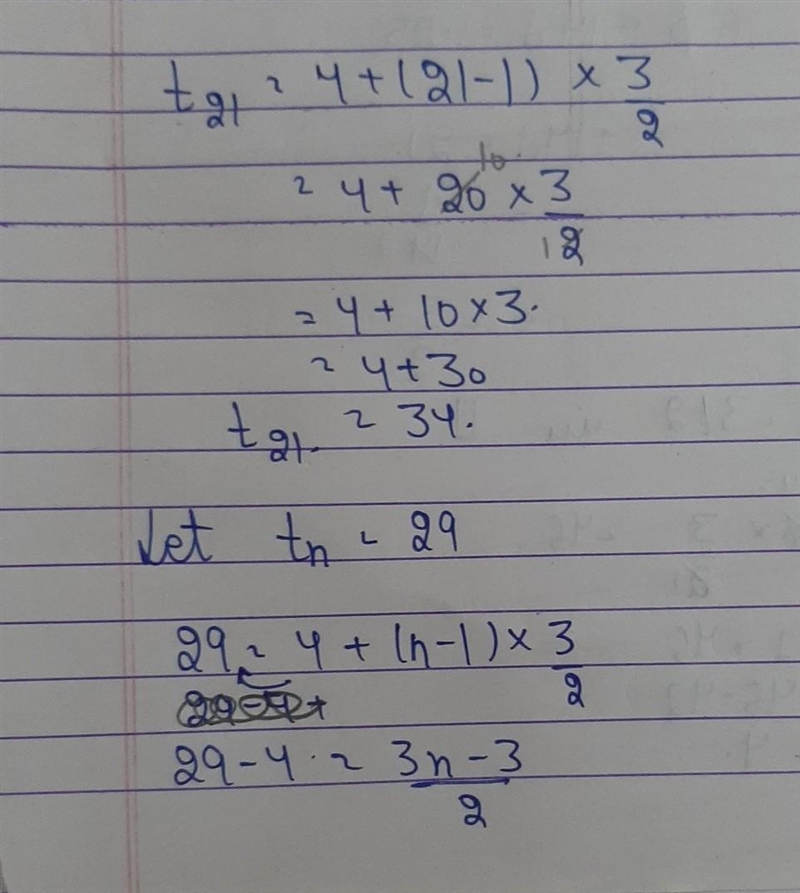 t₂₁ = 4 + (21-1) × 3/2
= 4 + 20 10 × 3/2 1
= 4 + 10 × 3.
= 4 + 30
t₂₁. = 34.
Let tₙ = 29
29 = 4 + (n-1) × 3/2
29 - 4 . = 3n - 3/2